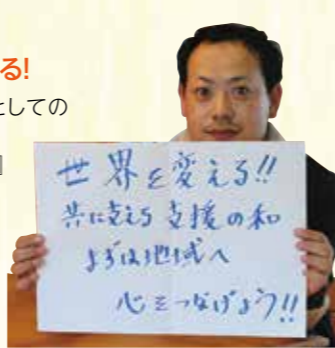 る!
としての
世界を変える!!
共に支える支援の和
まずは地域へ
心をつなげよう!!